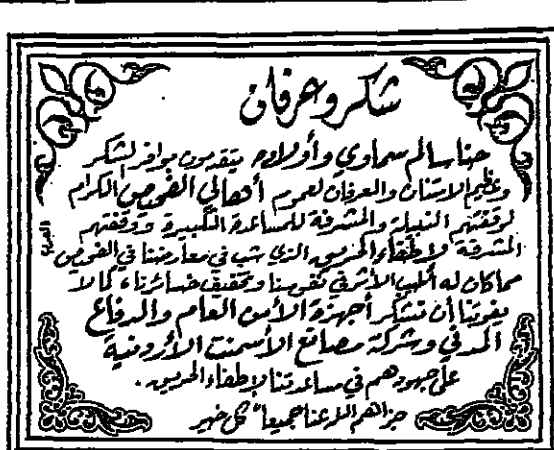 شكر وعرفان
حنا سالم سماوي وأولاده يتقدمون بوافر الشكر
وعظيم الامتنان والعرفان لعموم أهالي الفحيص الكرام
لوقفتهم النبيلة والمشرفة للمساعدة الكبيرة ووقفتهم
المشرفة لإطفاء الحريق الذي شب في معارضنا في الفحيص
مما كان له أطيب الأثر في نفوسنا وتخفيف خسائرنا، كما لا
يفوتنا أن نشكر أجهزة الأمن العام والدفاع
المدني وشركة مصانع الأسمنت الأردنية
على جهودهم في مساعدتنا لإطفاء الحريق.
جزاهم الله عنا جميعاً كل خير